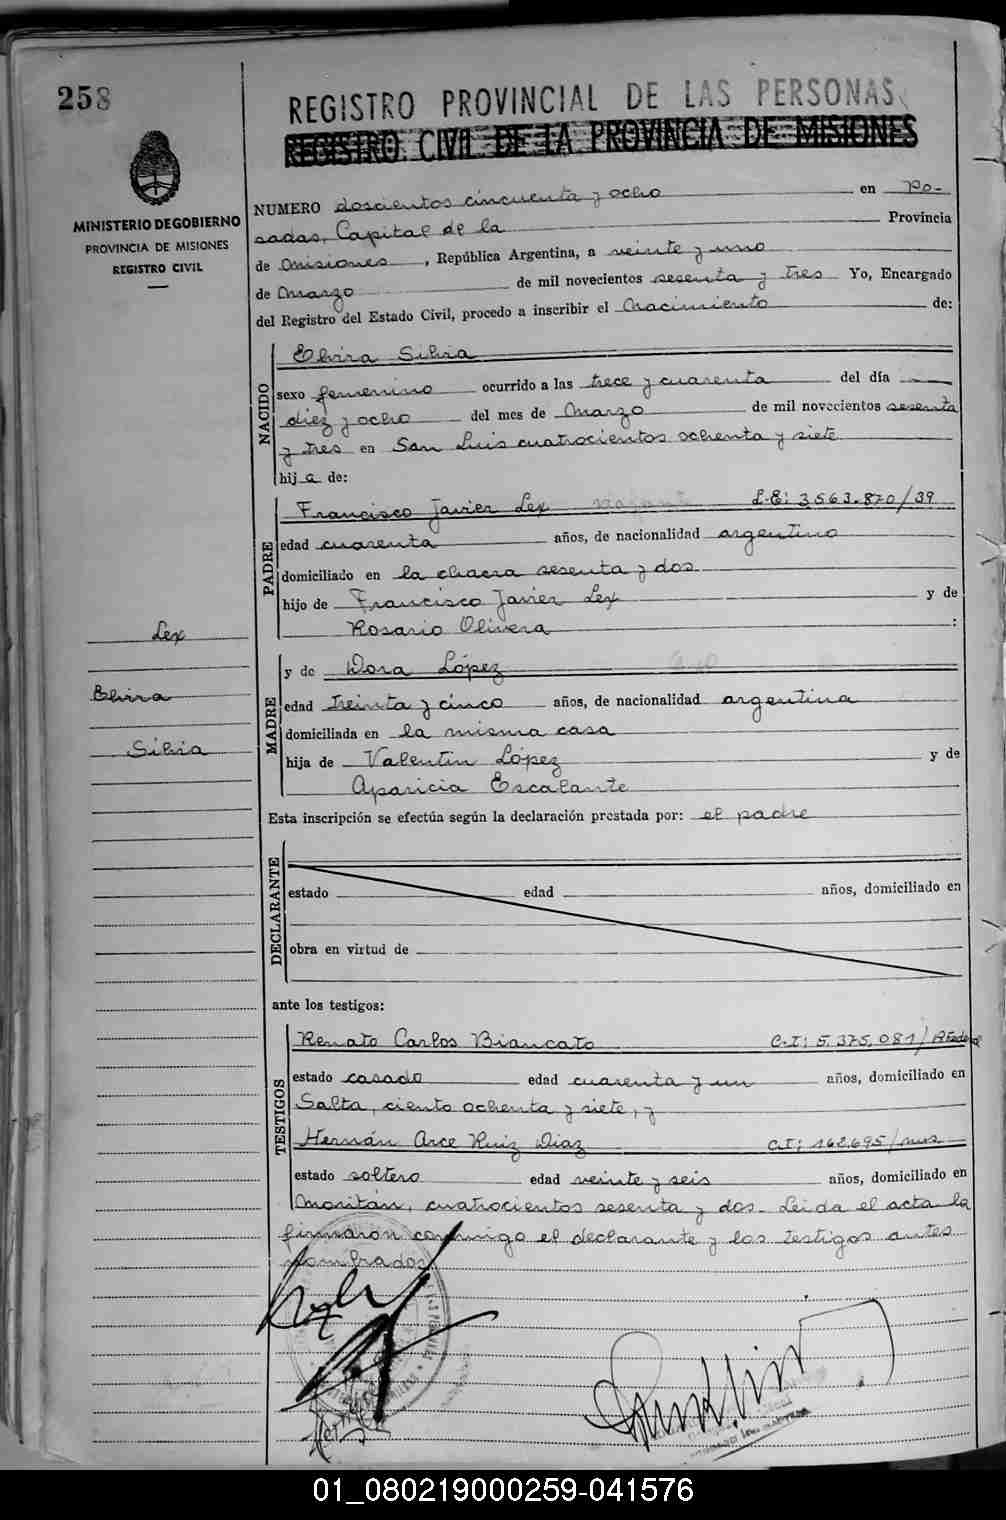 258
REGISTRO PROVINCIAL DE LAS PERSONAS
REGISTRO CIVIL DE LA PROVINCIA DE MISIONES
MINISTERIO DE GOBIERNO
PROVINCIA DE MISIONES
REGISTRO CIVIL
NUMERO doscientos cincuenta y ocho en Po-
sadas, Capital de la Provincia
de Misiones, República Argentina, a veinte y uno
de Marzo de mil novecientos sesenta y tres Yo, Encargado
del Registro del Estado Civil, procedo a inscribir el Nacimiento de:
NACIDO
Elvira Silvia
sexo femenino ocurrido a las trece y cuarenta del día
diez y ocho del mes de Marzo de mil novecientos sesenta
y tres en San Luis cuatrocientos ochenta y siete
hija de:
PADRE
Francisco Javier Lex L.E: 3.563.870/39
edad cuarenta años, de nacionalidad argentino
domiciliado en la chacra sesenta y dos
hijo de Francisco Javier Lex y de
Rosario Olivera :
Lex
Elvira
Silvia
MADRE
y de Dora López
edad treinta y cinco años, de nacionalidad argentina
domiciliada en la misma casa
hija de Valentín López y de
Aparicia Escalante
Esta inscripción se efectúa según la declaración prestada por: el padre
DECLARANTE
estado edad años, domiciliado en
obra en virtud de
ante los testigos:
TESTIGOS
Renato Carlos Biancato C.I: 5.375.081/PFederal
estado casado edad cuarenta y un años, domiciliado en
Salta, ciento ochenta y siete, y
Hernán Arce Ruiz Diaz C.I: 162.695/mns
estado soltero edad veinte y seis años, domiciliado en
Moritán, cuatrocientos sesenta y dos. Leida el acta la
firmaron conmigo el declarante y los testigos antes
nombrados
01_080219000259-041576